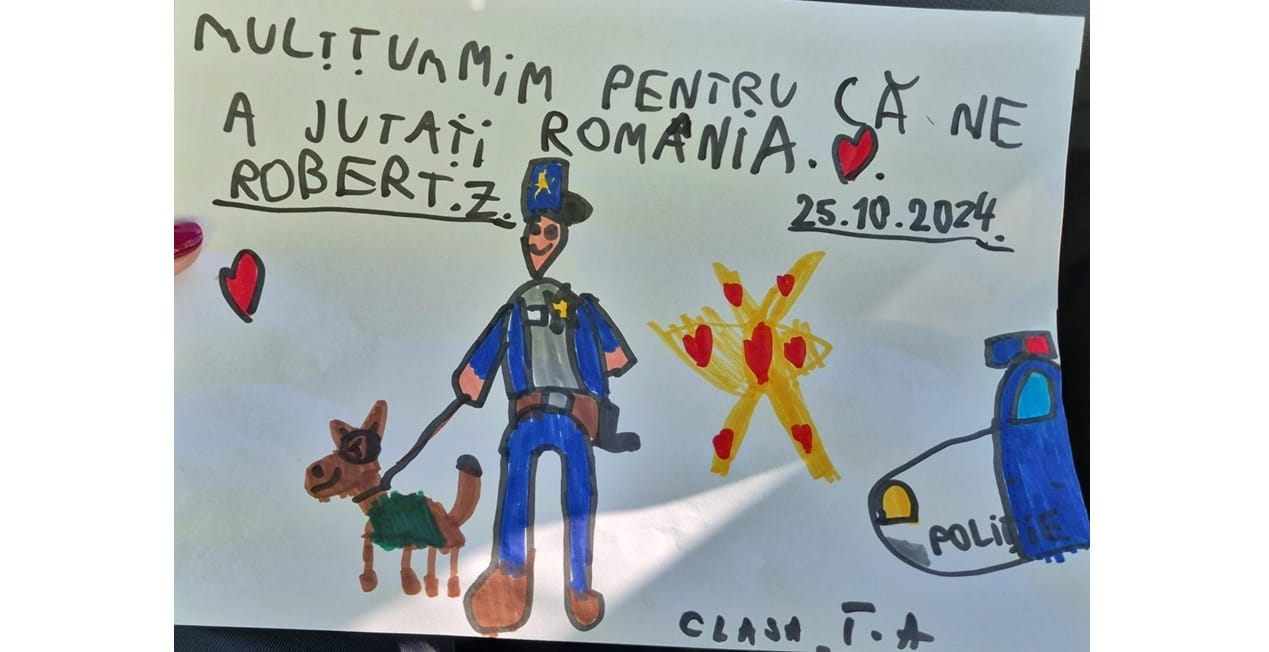 MULȚȚUMMIM PENTRU CĂ NE
A JUTAȚI ROMANIA.
ROBERT.Z.
25.10.2024.
POLIȚIE
CLASA I.A